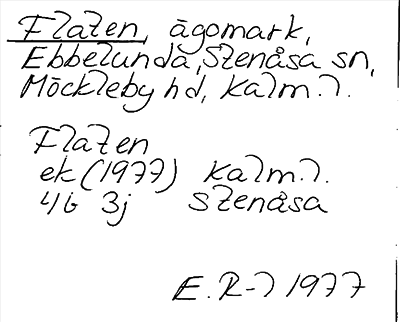 Flaten, ägomark,
Ebbelunda, Stenåsa sn,
Möckleby hd, Kalm. l.
Flaten
ek (1977) Kalm. l.
4G 3j Stenåsa
E. R-l 1977